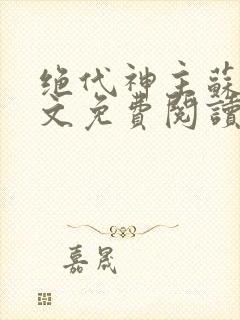 绝代神主蘇
文免費閱讀
嘉晟